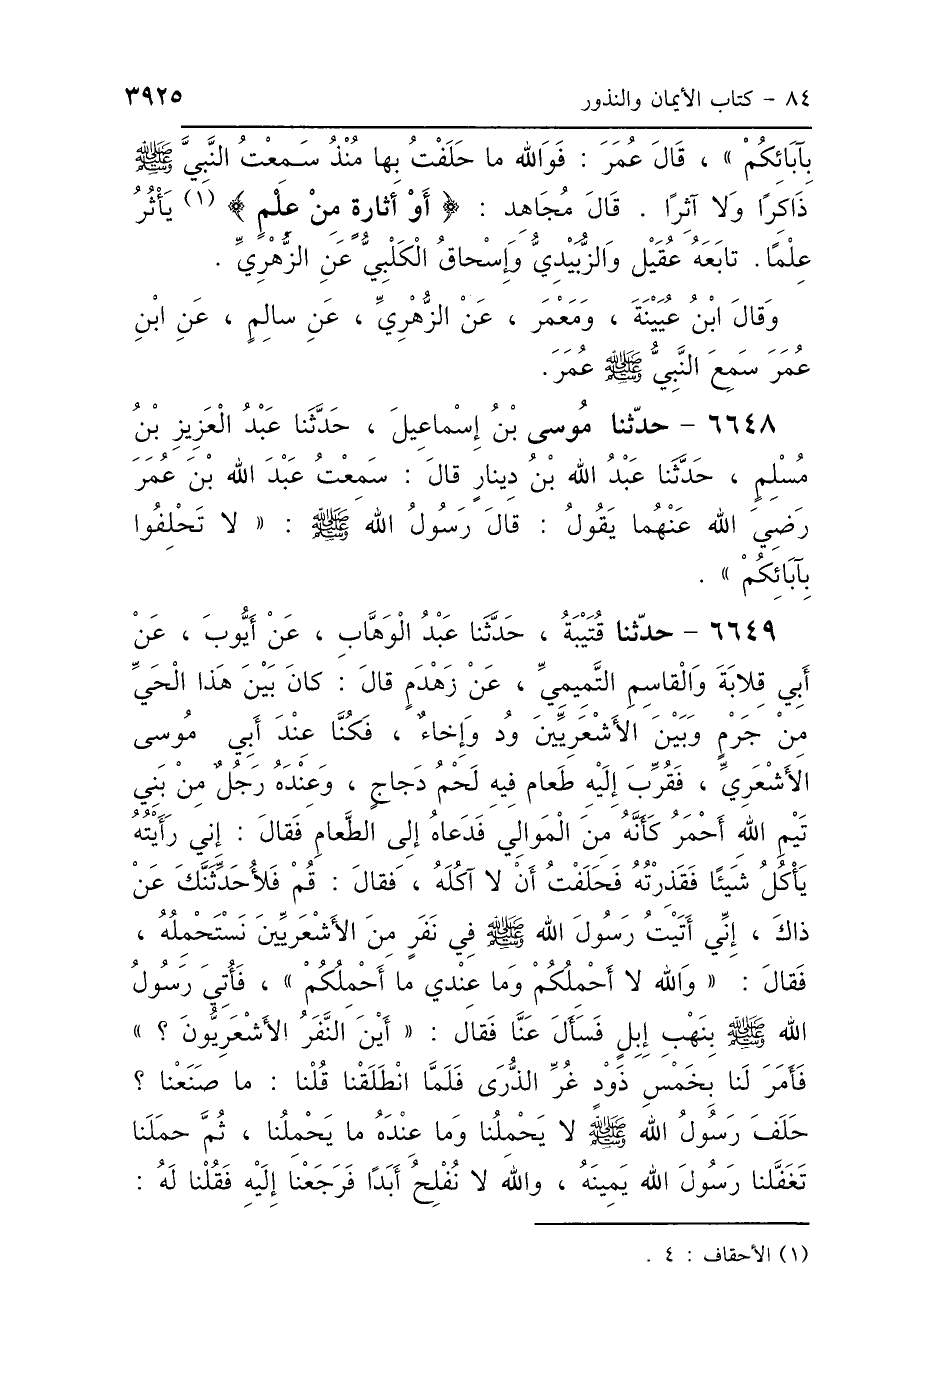 ٨٤ - كتاب الأيمان والنذور ٣٩٢٥
بِآبَائِكُمْ » ، قَالَ عُمَرَ : فَوَالله ما حَلَفْتُ بِها مُنْذُ سَمِعْتُ النَّبِيَّ ﷺ
ذَاكِرًا وَلا آثِرًا . قَالَ مُجَاهِد : ﴿ أَوْ أثارةٍ مِنْ عِلْمٍ ﴾ (١) يَأْثُرُ
عِلْمًا. تابَعَهُ عُقَيْل وَالزُّبَيْدِيُّ وَإِسْحاقُ الْكَلْبِيُّ عَنِ الزُّهْرِيِّ .
وَقالَ ابْنُ عُيَيْنَةَ ، وَمَعْمَر ، عَنْ الزُّهْرِيِّ ، عَنِ سالِمٍ ، عَنِ ابْنِ
عُمَرَ سَمِعَ النَّبِيُّ ﷺ عُمَرَ.
٦٦٤٨ - حدّثنا مُوسى بْنُ إِسْماعِيلَ ، حَدَّثَنا عَبْدُ الْعَزِيزِ بْنُ
مُسْلِمٍ ، حَدَّثَنا عَبْدُ الله بْنُ دِينارٍ قالَ : سَمِعْتُ عَبْدَ الله بْنَ عُمَرَ
رَضِيَ الله عَنْهُما يَقُولُ : قالَ رَسُولُ الله ﷺ : « لا تَحْلِفُوا
بِآبَائِكُمْ » .
٦٦٤٩ - حدّثنا قُتَيْبَةُ ، حَدَّثَنا عَبْدُ الْوَهَّابِ ، عَنْ أَيُّوبَ ، عَنْ
أَبِي قِلابَةَ وَالْقاسِمِ التَّمِيمِيِّ ، عَنْ زَهْدَمٍ قالَ : كانَ بَيْنَ هَذا الْحَيِّ
مِنْ جَرْمٍ وَبَيْنَ الأَشْعَرِيِّينَ وُد وَإِخاءٌ ، فَكُنَّا عِنْدَ أَبِي مُوسى
الأَشْعَرِيِّ ، فَقُرِّبَ إِلَيْهِ طَعام فِيهِ لَحْمُ دَجاجٍ ، وَعِنْدَهُ رَجُلٌ مِنْ بَنِي
تَيْمِ اللهِ أَحْمَرُ كَأَنَّهُ مِنَ الْمَوالِي فَدَعاهُ إِلى الطَّعامِ فَقالَ : إِنِي رَأَيْتُهُ
يَأْكُلُ شَيئًا فَقَذِرْتُهُ فَحَلَفْتُ أَنْ لا آكُلَهُ ، فَقالَ : قُمْ فَلأُحَدِّثَنَّكَ عَنْ
ذاكَ ، إِنِّي أَتَيْتُ رَسُولَ الله ﷺ فِي نَفَرٍ مِنَ الأَشْعَرِيِّينَ نَسْتَحْمِلُهُ ،
فَقالَ : « وَالله لا أَحْمِلُكُمْ وَما عِنْدِي ما أَحْمِلُكُمْ » ، فَأُتِيَ رَسُولُ
الله ﷺ بِنَهْبِ إِبِلٍ فَسَأَلَ عَنَّا فَقال : « أَيْنَ النَّفَرُ الأَشْعَرِيُّونَ ؟ »
فَأَمَرَ لَنا بِخَمْسِ ذَوْدٍ غُرِّ الذُّرَى فَلَمَّا انْطَلَقْنا قُلْنا : ما صَنَعْنا ؟
حَلَفَ رَسُولُ الله ﷺ لا يَحْمِلُنا وَما عِنْدَهُ ما يَحْمِلُنا ، ثُمَّ حمَلَنا
تَغَفَّلنا رَسُولَ الله يَمِينَهُ ، والله لا نُفْلِحُ أَبَدًا فَرَجَعْنا إِلَيْهِ فَقُلْنا لَهُ :
(١) الأحقاف : ٤ .